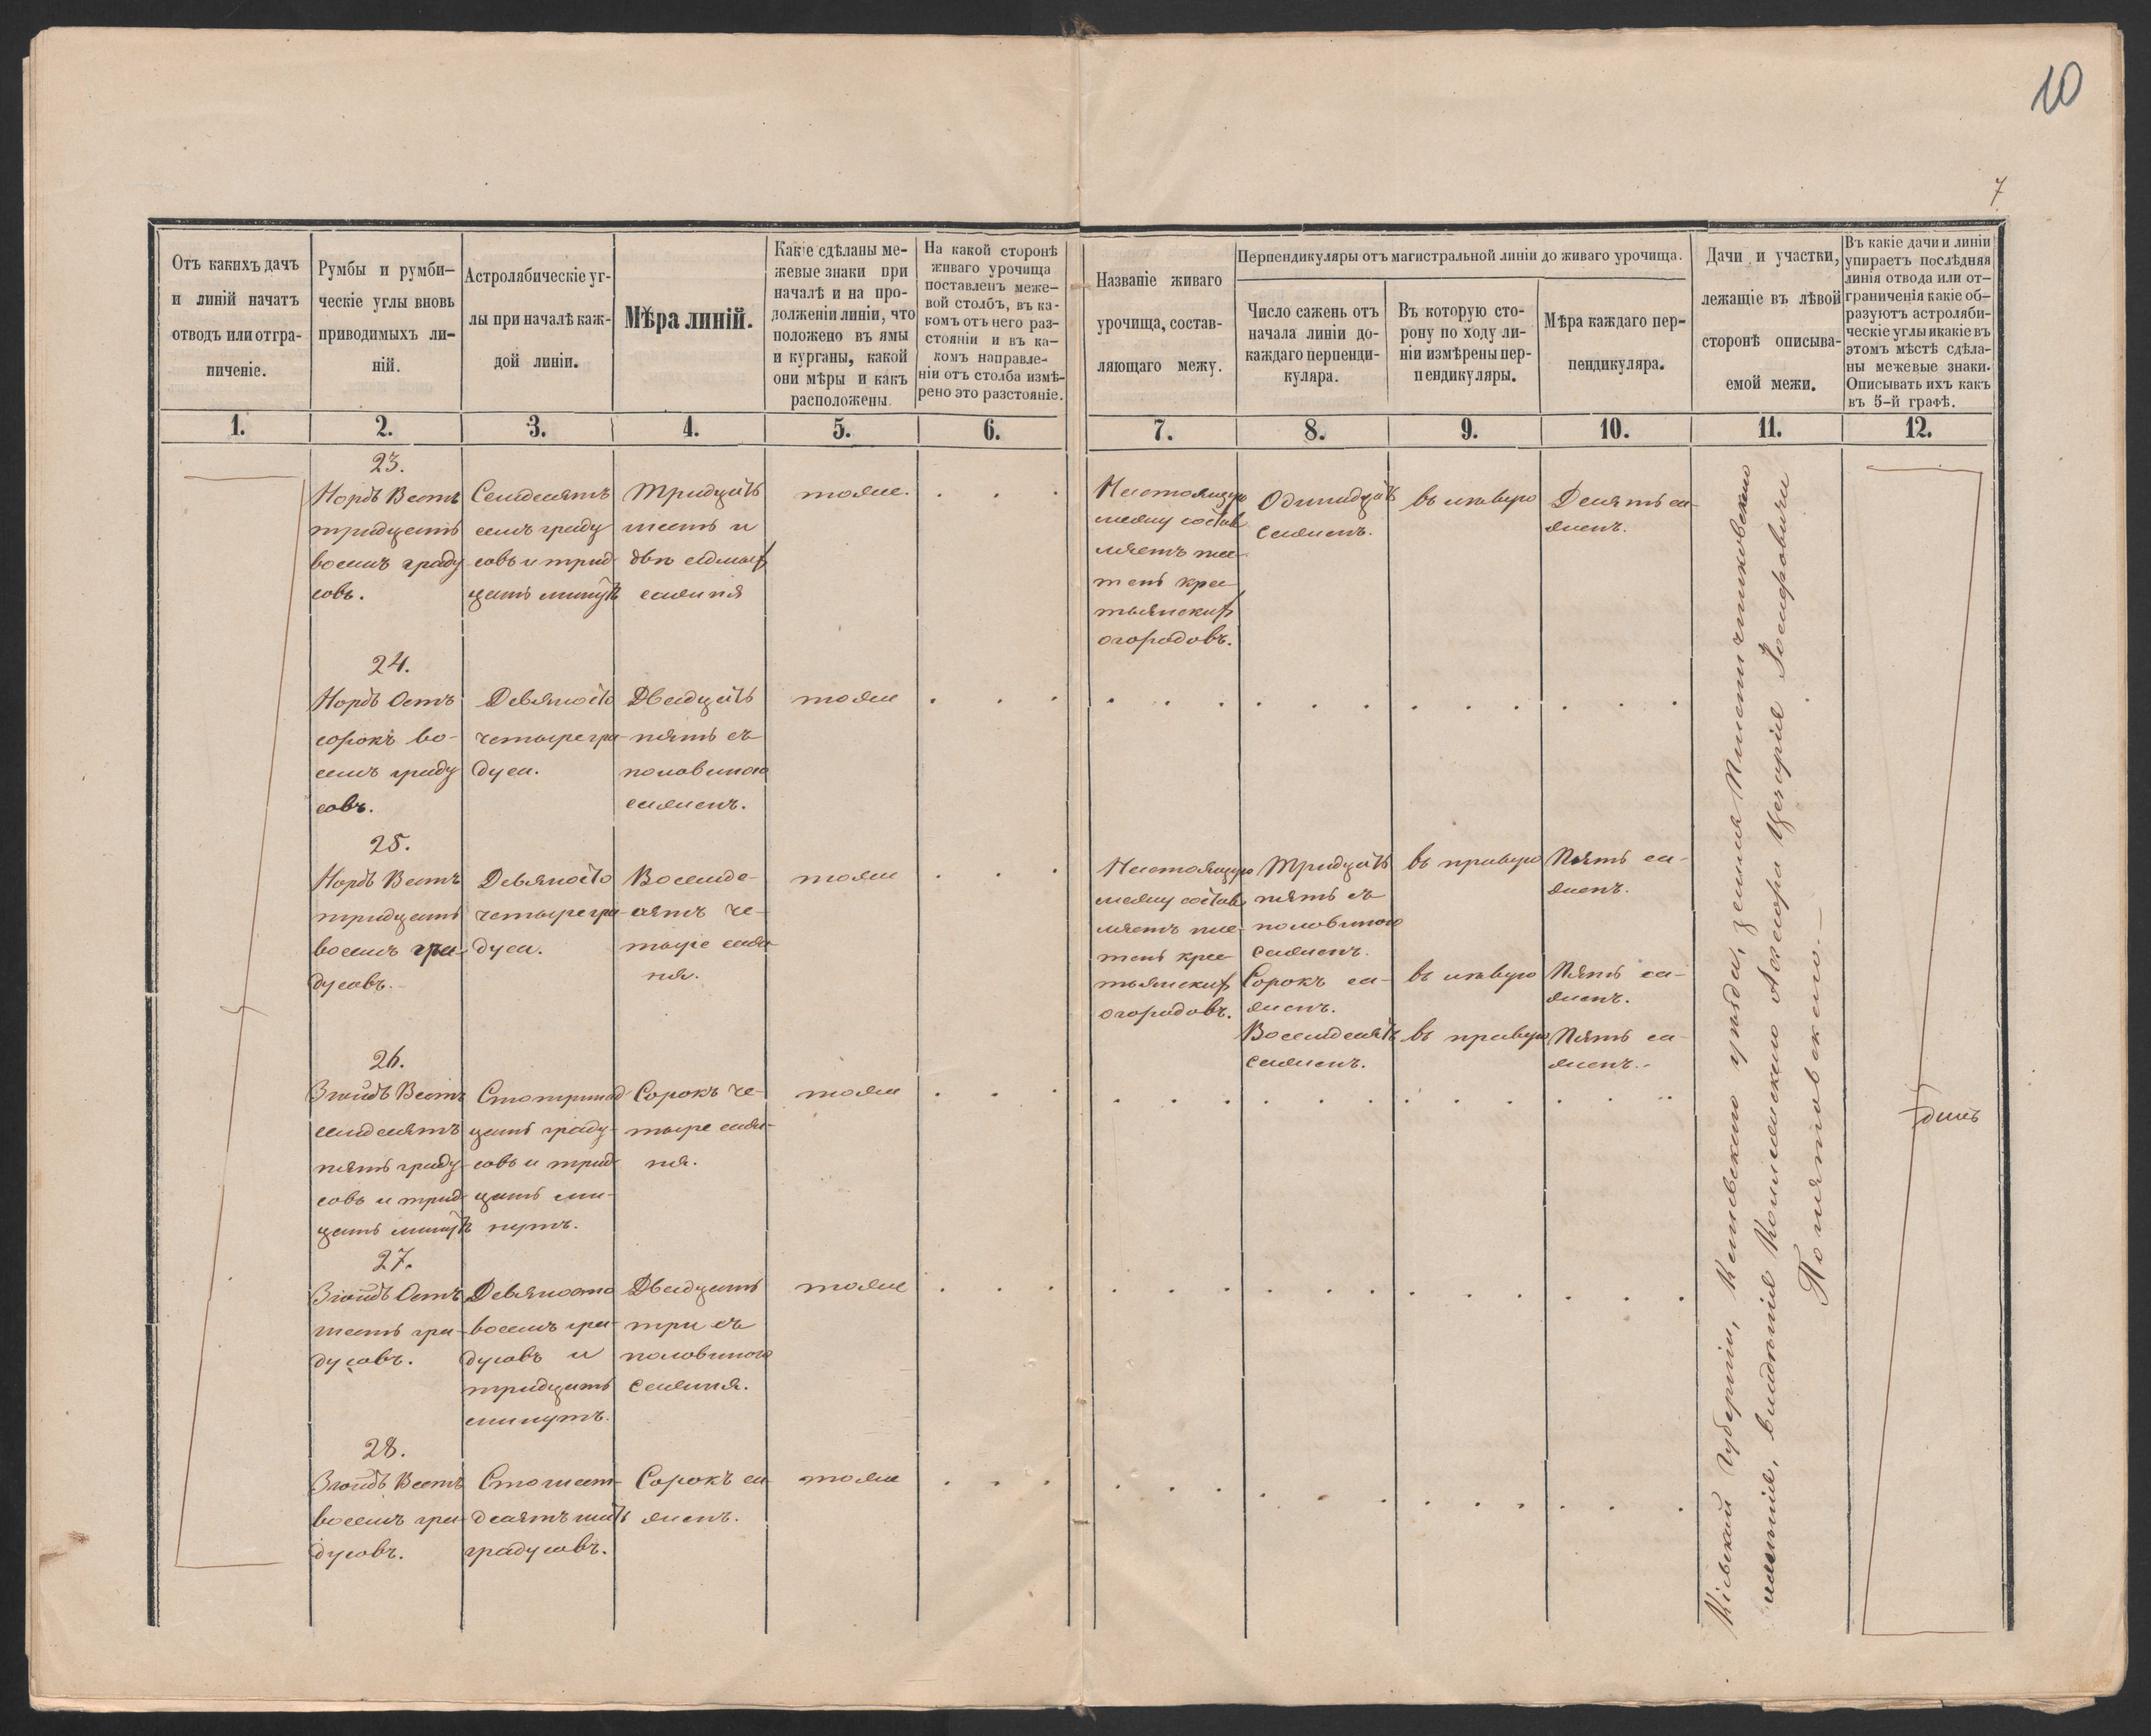 10
7
Отъ какихъ дачъ
и линій начатъ
отводъ или отгра-
ниченіе.
Румбы и румби-
ческіе углы вновь
приводимыхъ ли-
ній.
Астролябическіе уг-
лы при началѣ каж-
дой линіи.
Мѣра линій.
Какіе сдѣланы ме-
жевые знаки при
началѣ и на про-
долженіи линіи, что
положено въ ямы
и курганы, какой
они мѣры и какъ
расположены.
На какой сторонѣ
живаго урочища
поставленъ меже-
вой столбъ, въ ка-
комъ отъ него раз-
стояніи и въ ка-
комъ направле-
ніи отъ столба измѣ-
рено это разстояніе.
Названіе живаго
урочища, состав-
ляющаго межу.
Перпендикуляры отъ магистральной линіи до живаго урочища.
Число сажень отъ
начала линіи до-
каждаго перпенди-
куляра.
Въ которую сто-
рону по ходу ли-
ніи измѣрены пер-
пендикуляры.
Мѣра каждаго пер-
пендикуляра.
Дачи и участки,
лежащіе въ лѣвой
сторонѣ описыва-
емой межи.
Въ какіе дачи и линіи
упираетъ послѣдняя
линія отвода или от-
граниченія какіе об-
разуютъ астроляби-
ческіе углы и какіе въ
этомъ мѣстѣ сдѣла-
ны межевые знаки.
Описывать ихъ какъ
въ 5-й графѣ.
1. 2. 3. 4. 5. 6. 7. 8. 9. 10. 11. 12.
23.
Нордъ Вестъ
тридцать
восемь граду
совъ.
Семдесятъ
семь граду
совъ и трид-
цать минутъ
Тридцать
шесть и
двѣ седмых
саженя
тоже.
Настоящую
межу состав
ляетъ пле-
тень крес-
тьянских
огородовъ.
Одинадцать
сажень.
въ лѣвую
Десять са-
жень.
24.
Нордъ Остъ
сорокъ во-
семь граду
совъ.
Девяносто
четыре гра-
дуса.
Двадцать
пять съ
половиною
сажень.
тоже
25.
Нордъ Вестъ
тридцать
восемь гра-
дусовъ.
Девяносто
четыре гра-
дуса.
Восемде-
сятъ че-
тыре саже-
ня.
тоже
Настоящую
межу состав
ляетъ пле-
тень крес-
тьянских
огородовъ.
Тридцать
пять съ
половиною
сажень.
въ правую
Пять са-
жень.
Сорокъ са-
жень.
въ лѣвую
Пять са-
жень.
Восемдесятъ
сажень.
въ правую
Пять са-
жень.
26.
Зюйдъ Вестъ
семдесятъ
пять граду
совъ и трид
цать минутъ
Сто тринад
цать граду-
совъ и трид
цать ми-
нутъ.
Сорокъ че-
тыре саже-
ня.
тоже
27.
Зюйдъ Остъ
шесть гра-
дусовъ.
Девяносто
восемь гра-
дусовъ и
тридцать
минутъ.
Двадцать
три съ
половиною
саженя.
тоже
28.
Зюйдъ Вестъ
восемь гра-
дусовъ.
Сто шест-
десятъ шесть
градусовъ.
Сорокъ са-
жень.
тоже
Кіевской Губерніи, Каневскаго уѣзда, земля Пшеничниковскаго
имѣнія, владѣнія Коллежскаго Асессора Цезарія Іосифовича
Понятовскаго.